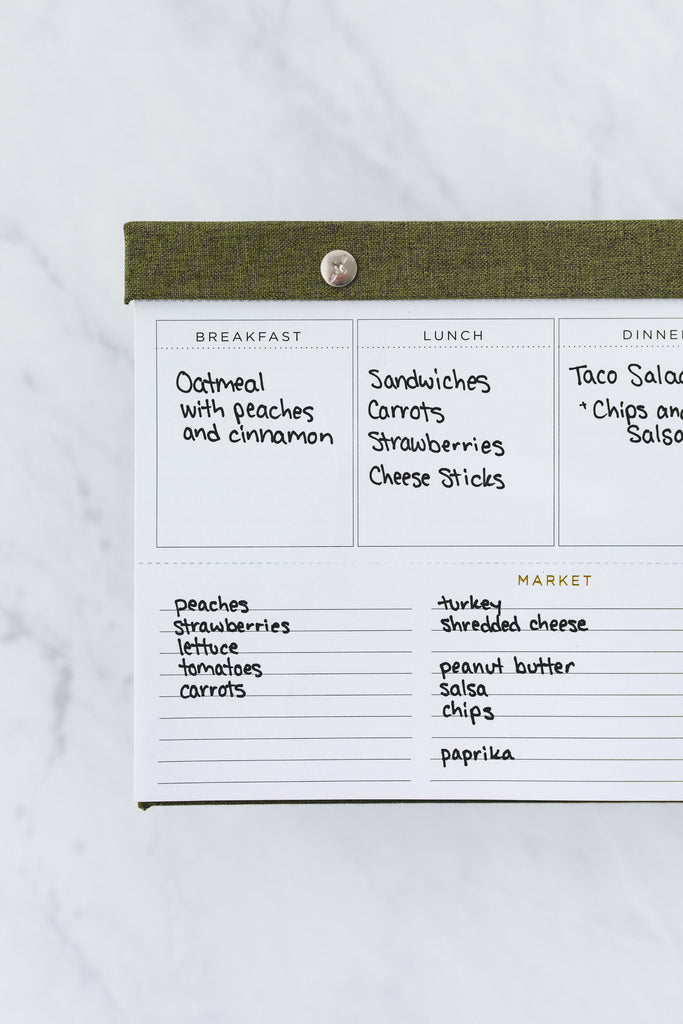 BREAKFAST
Oatmeal
with peaches
and cinnamon
LUNCH
Sandwiches
Carrots
Strawberries
Cheese Sticks
Taco
+ Chips
Salsa
MARKET
peaches
strawberries
lettuce
tomatoes
carrots
turkey
shredded cheese
peanut butter
salsa
chips
paprika